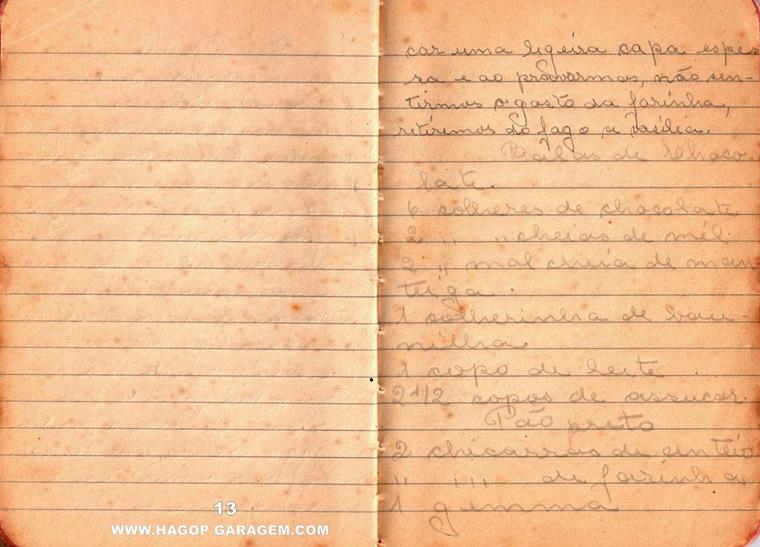 13
WWW.HAGOP GARAGEM.COM
car uma ligeira capa espes
ra e ao provarmos, não sen-
tirmos o gosto da farinha,
retiremos do fogo a
Balas de Choco-
late.
6 colheres de chocolate
2 " " cheias de mél
2 " mal cheia de man
teiga.
1 colherinha de bau-
nilha
1 copo de leite
2 1/2 copos de assucar.
Pão preto
2 chicarras de enteio
" " " de farinha
1 gemma